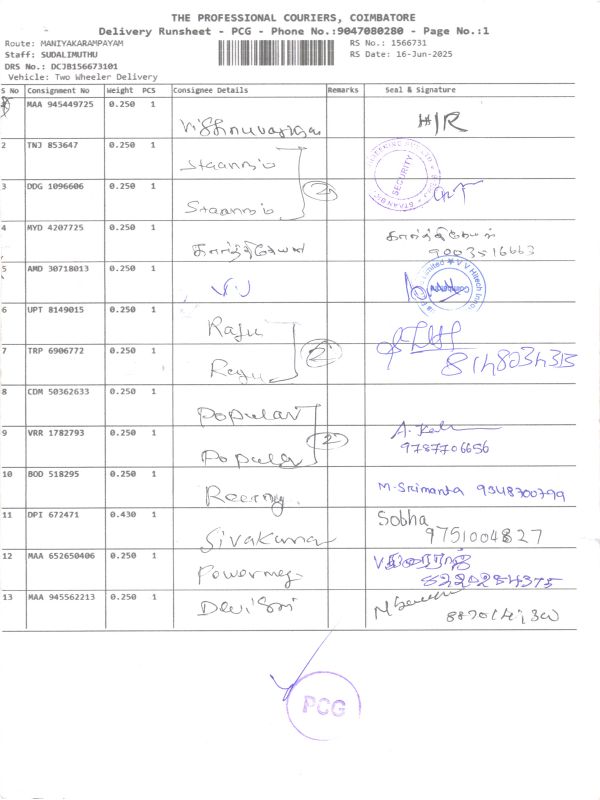 THE PROFESSIONAL COURIERS, COIMBATORE
Delivery Runsheet - PCG - Phone No.:9047080280 - Page No.:1
Route: MANIYAKARAMPAYAM RS No.: 1566731
Staff: SUDALIMUTHU RS Date: 16-Jun-2025
DRS No.: DCJB156673101
Vehicle: Two Wheeler Delivery
S No Consignment No Weight PCS Consignee Details Remarks Seal & Signature
MAA 945449725 0.250 1
H/R
2 TNJ 853647 0.250 1
SECURITY
3 DDG 1096606 0.250 1
2
4 MYD 4207725 0.250 1 கார்த்திகேயன்
கார்த்திகேயன் 9003516663
5 AMD 30718013 0.250 1
V.J
V V Hitech
6 UPT 8149015 0.250 1
Raju
7 TRP 6906772 0.250 1 2
Raju 8148034313
8 CDM 50362633 0.250 1
Popular
9 VRR 1782793 0.250 1 2
Popula 9787706656
10 BOD 518295 0.250 1
M.Srimanta 9348700799
11 DPI 672471 0.430 1 Sobha
Sivakumar 9751004827
12 MAA 652650406 0.250 1
Powermeg 8220284375
13 MAA 945562213 0.250 1
Devi Sri
PCG